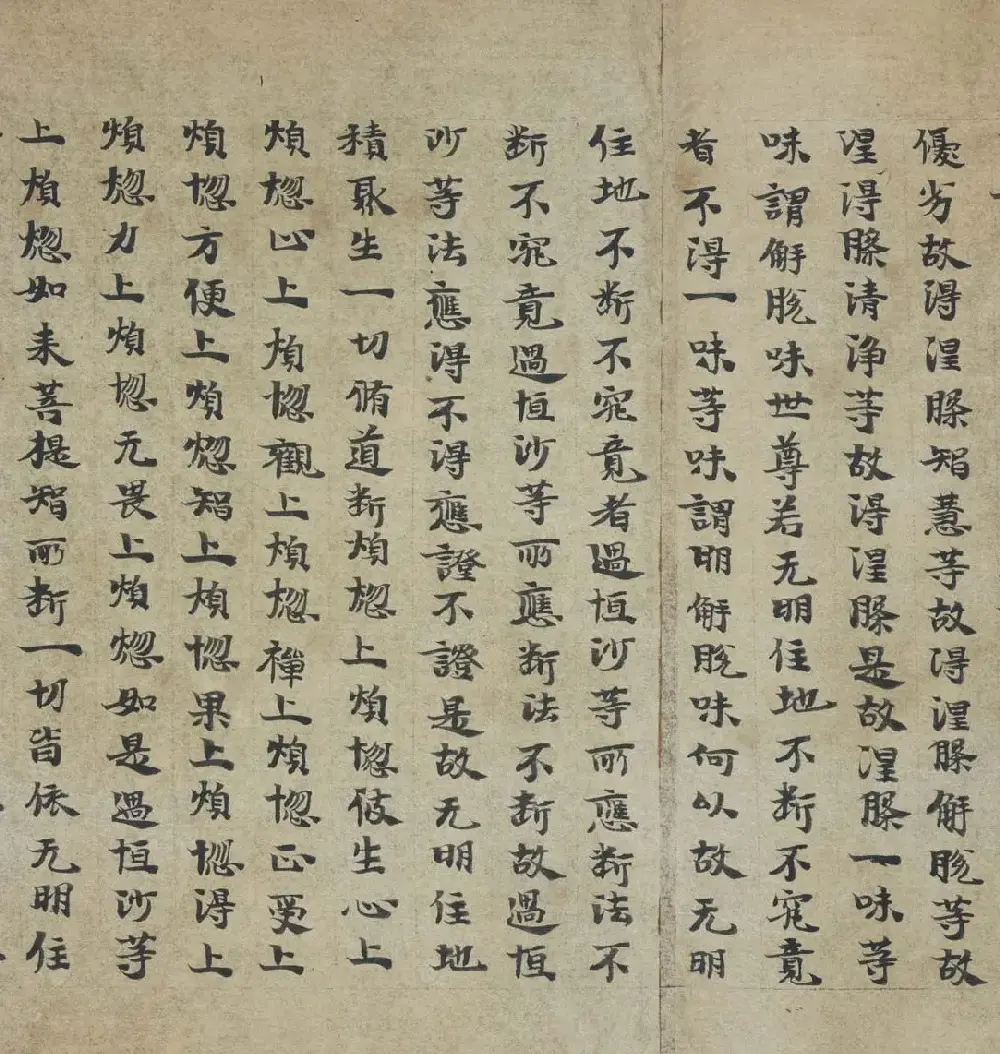 優劣故得涅槃智慧等故得涅槃解脫等故
涅得槃清浄等故得涅槃是故涅槃一味等
味謂解脫味世尊若无明住地不断不究竟
者不得一味等味謂明解脫味何以故无明
住地不断不究竟者過恒沙等所應断法不
断不究竟過恒沙等所應断法不断故過恒
沙等法應得不得應證不證是故无明住地
積聚生一切脩道断煩惱上煩惱彼生心上
煩惱止上煩惱觀上煩惱禪上煩惱正受上
煩惱方便上煩惱智上煩惱果上煩惱得上
煩惱力上煩惱无畏上煩惱如是過恒沙等
上煩惱如来菩提智所断一切皆依无明住